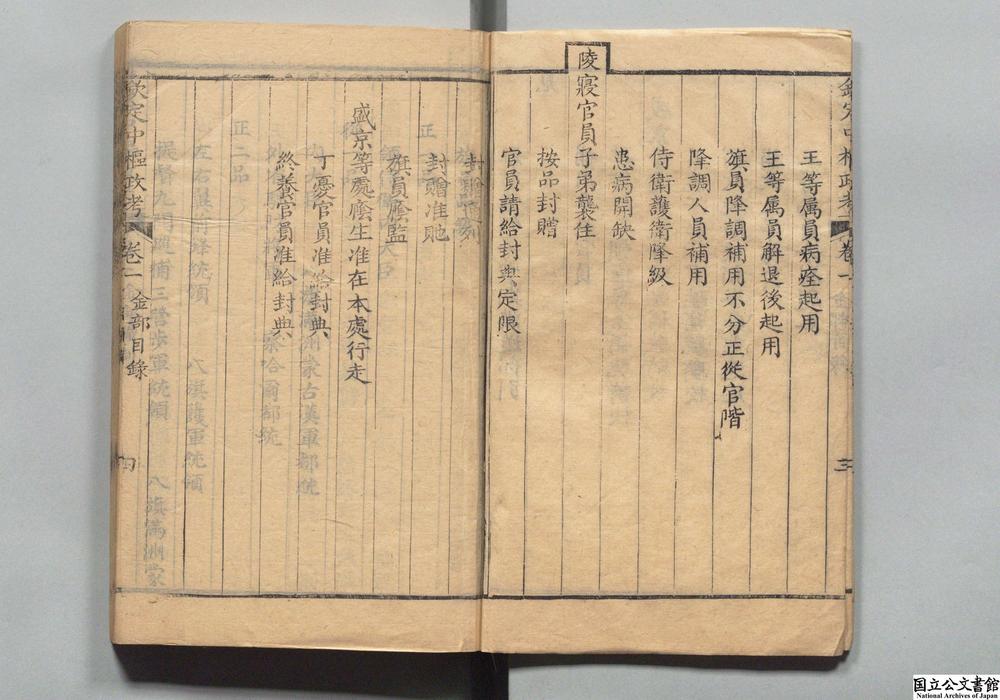 欽定中樞政考
卷一
三
王等属員病痊起用
王等属員解退後起用
旗員降調補用不分正從官階
降調人員補用
侍衛護衛降級
患病開缺
陵寢官員子弟襲住
按品封贈
官員請給封典定限
封贈
封贈准貤
旗員廕監
盛京等處廕生准在本處行走
丁憂官員准給封典
終養官員准給封典
欽定中樞政考
卷一
金部目錄
四
国立公文書館
National Archives of Japan